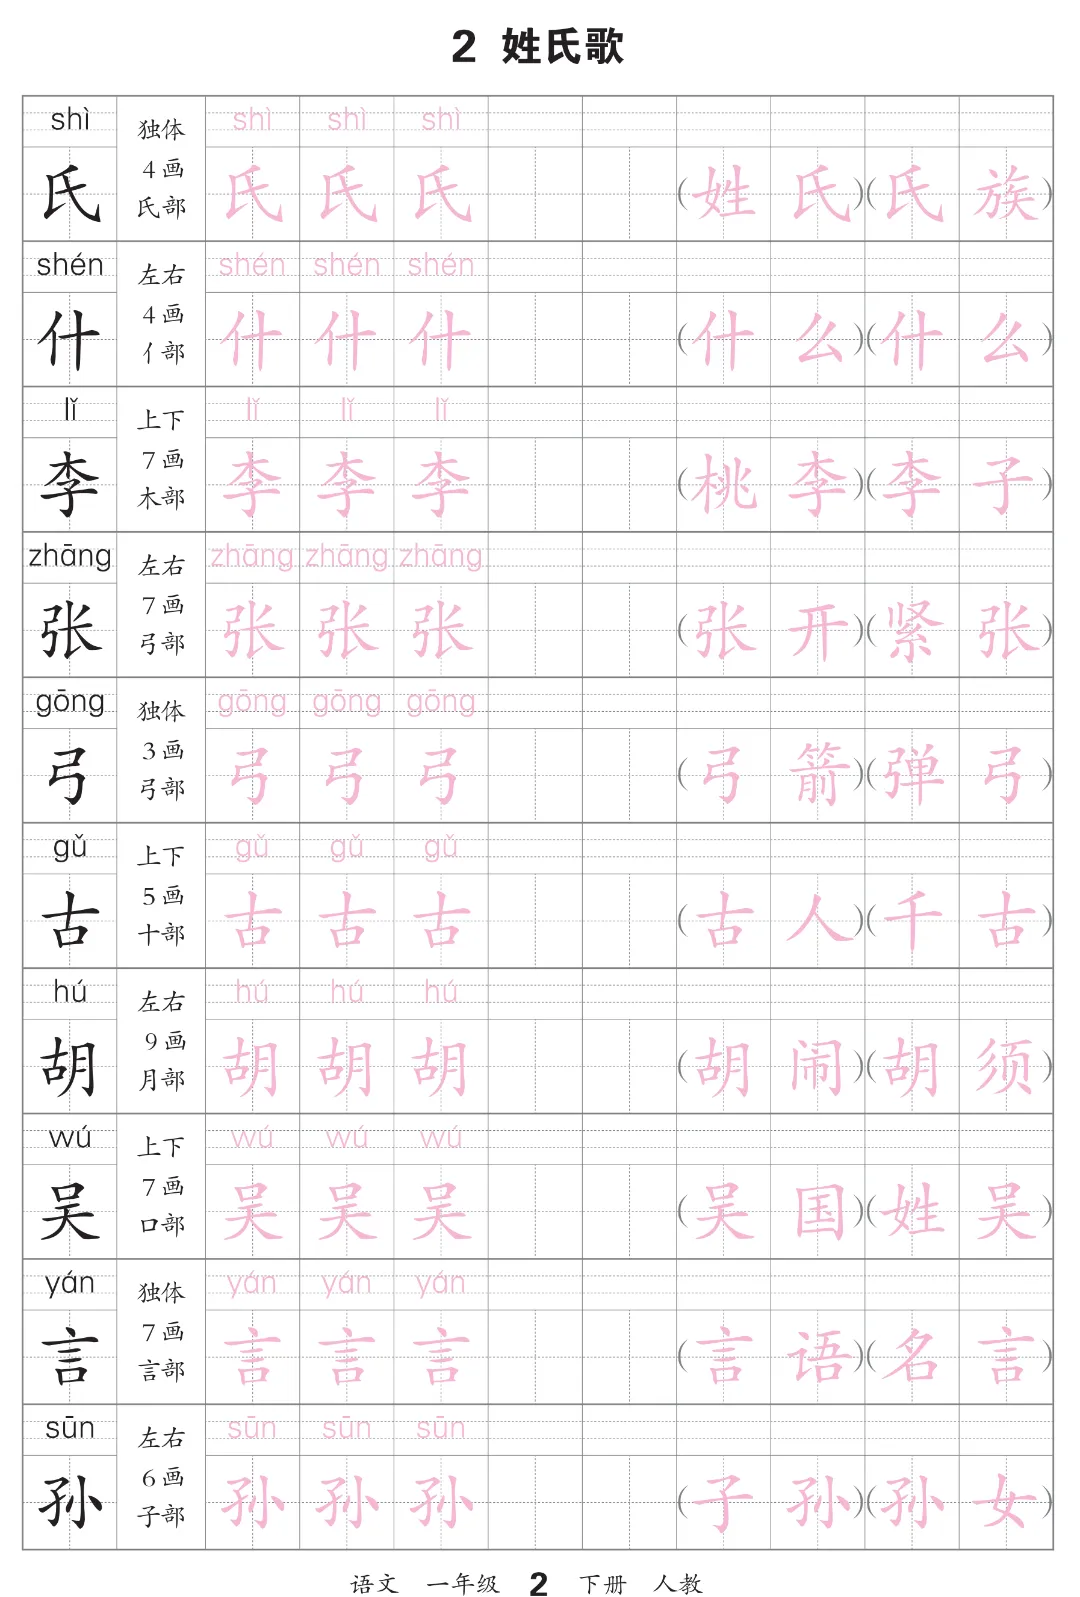 2 姓氏歌
shì 独体 shì shì shì
4画
氏 氏部 氏 氏 氏 (姓 氏)(氏 族)
shén 左右 shén shén shén
4画
什 亻部 什 什 什 (什 么)(什 么)
lǐ 上下 lǐ lǐ lǐ
7画
李 木部 李 李 李 (桃 李)(李 子)
zhāng 左右 zhāng zhāng zhāng
7画
张 弓部 张 张 张 (张 开)(紧 张)
gōng 独体 gōng gōng gōng
3画
弓 弓部 弓 弓 弓 (弓 箭)(弹 弓)
gǔ 上下 gǔ gǔ gǔ
5画
古 十部 古 古 古 (古 人)(千 古)
hú 左右 hú hú hú
9画
胡 月部 胡 胡 胡 (胡 闹)(胡 须)
wú 上下 wú wú wú
7画
吴 口部 吴 吴 吴 (吴 国)(姓 吴)
yán 独体 yán yán yán
7画
言 言部 言 言 言 (言 语)(名 言)
sūn 左右 sūn sūn sūn
6画
孙 子部 孙 孙 孙 (子 孙)(孙 女)
语文 一年级 2 下册 人教